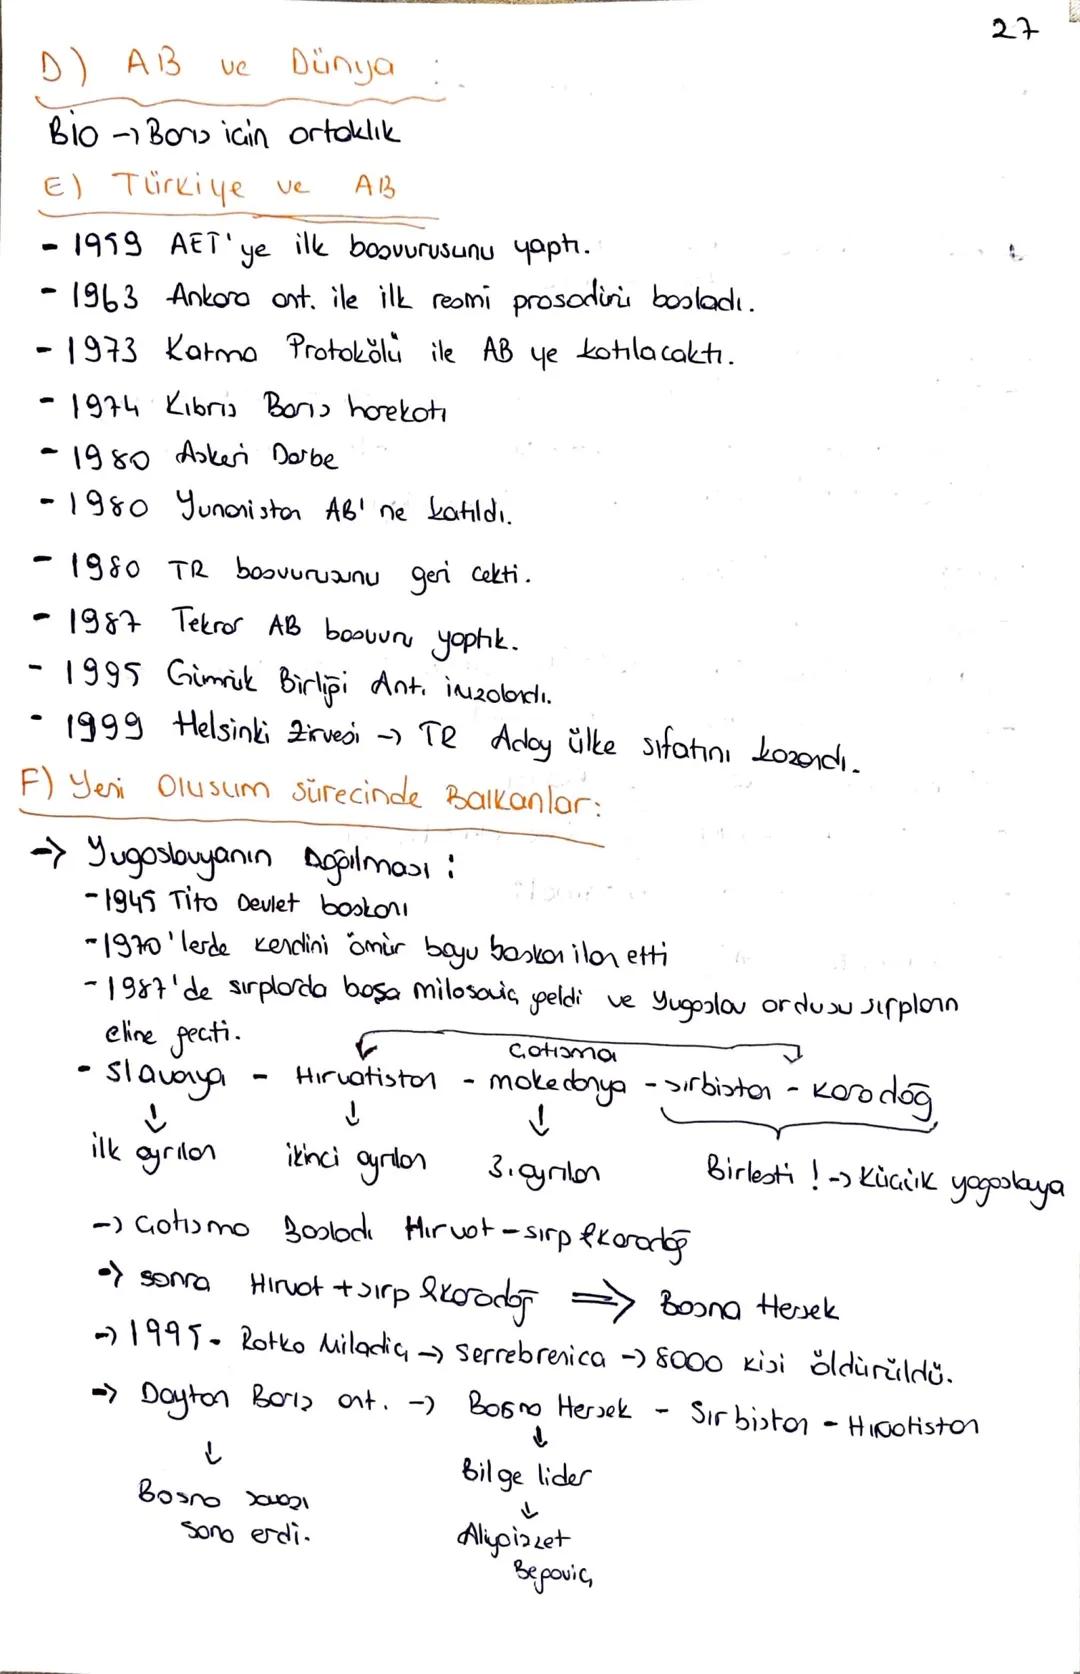 27
D) AB ve Dünya :
BİO → Barış için ortaklık
E) Türkiye ve AB
- 1959 AET'ye ilk başvurusunu yaptı.
- 1963 Ankara ant. ile ilk resmi prosedürü başladı.
- 1973 Katma Protokölü ile AB ye katılacaktı.
- 1974 Kıbrıs Barış harekatı
- 1980 Askeri Darbe
- 1980 Yunanistan AB'ne katıldı.
- 1980 TR başvurusunu geri çekti.
- 1987 Tekrar AB başvuru yaptık.
- 1995 Gümrük Birliği Ant. imzalandı.
- 1999 Helsinki Zirvesi → TR Aday ülke sıfatını kazandı.
F) Yeni Olusum sürecinde Balkanlar:
→ Yugoslavyanın Dağılması :
- 1945 Tito Devlet başkanı
- 1970'lerde kendini ömür boyu başkan ilan etti
- 1987'de sırplarda başa miloseviç geldi ve Yugoslav ordusu sırpların
eline geçti.
çatışma
- Slavonya - Hırvatistan - makedonya - sırbistan - karadağ
↓ ↓ ↓
ilk ayrılan ikinci ayrılan 3. ayrılan Birleşti ! → küçük yogoslavya
→ çatışma Başladı Hırvat - sırp & karadağ
→ sonra Hırvat + sırp & karadağ ⇒ Bosna Hersek
→ 1995 - Ratko Miladiç → Serrebrenica → 8000 kişi öldürüldü.
→ Dayton Barış ant. → Bosna Hersek - Sırbistan - Hırvatistan
↓ ↓
Bosna savaşı Bilge lider
sona erdi. ↓
Aliyaizzet
Begoviç